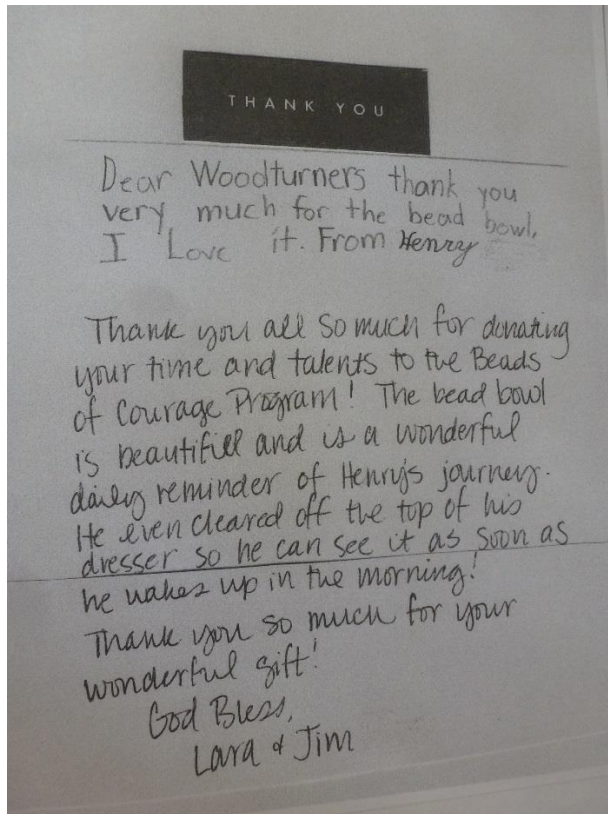 THANK YOU
Dear Woodturners thank you
very much for the bead bowl.
I Love it. From Henry
Thank you all so much for donating
your time and talents to the Beads
of Courage Program! The bead bowl
is beautiful and is a wonderful
daily reminder of Henry's journey.
He even cleared off the top of his
dresser so he can see it as soon as
he wakes up in the morning!
Thank you so much for your
wonderful gift!
God Bless,
Lara & Jim